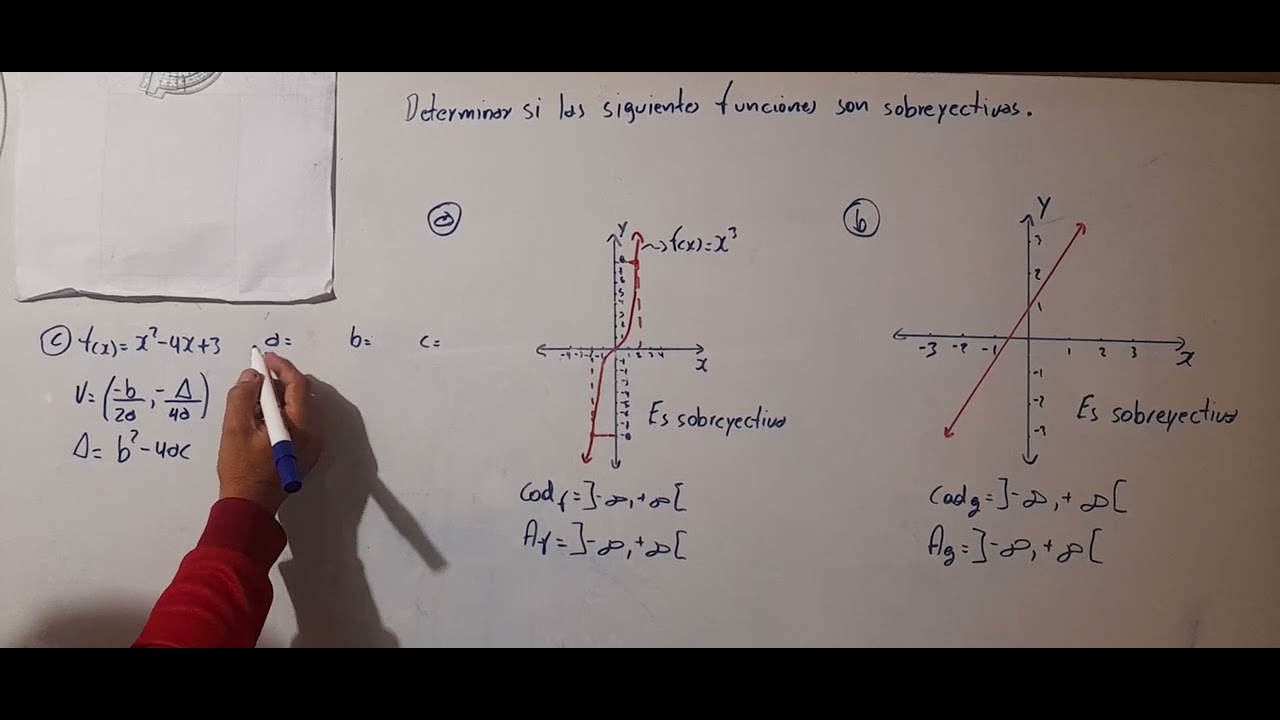 Determinar si las siguientes funciones son sobreyectivas.
a
Y
f(x)=x³
8
-4 -3 -2 -1 1 2 3 4
X
-8
Es sobreyectiva
Cod_f = ]-∞, +∞[
A_f = ]-∞, +∞[
b
Y
3
2
1
-3 -2 -1 1 2 3
X
-1
-2
-3
Es sobreyectiva
Cod_g = ]-∞, +∞[
A_g = ]-∞, +∞[
c f(x)= x²-4x+3 a= b= c=
V= (-b/2a, -Δ/4a)
Δ= b²-4ac